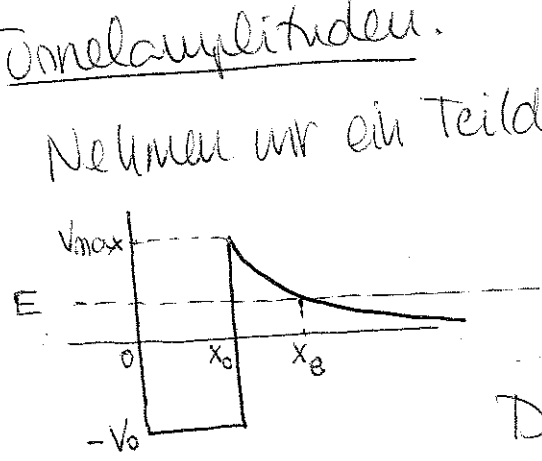 Tunnelamplituden.
Nehmen wir ein Teild
Vmax
E
0 x₀ x_B
D
-V₀